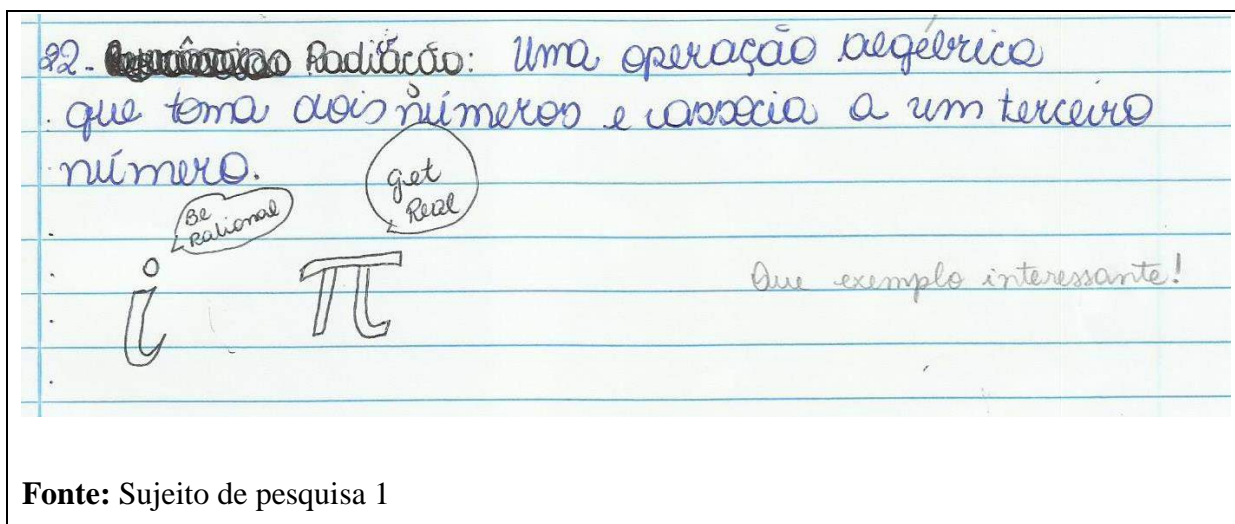 22- Radiação: Uma operação algébrica
que toma dois números e associa a um terceiro
número.
Be
Rational
get
Real
i π
Que exemplo interessante!
Fonte: Sujeito de pesquisa 1